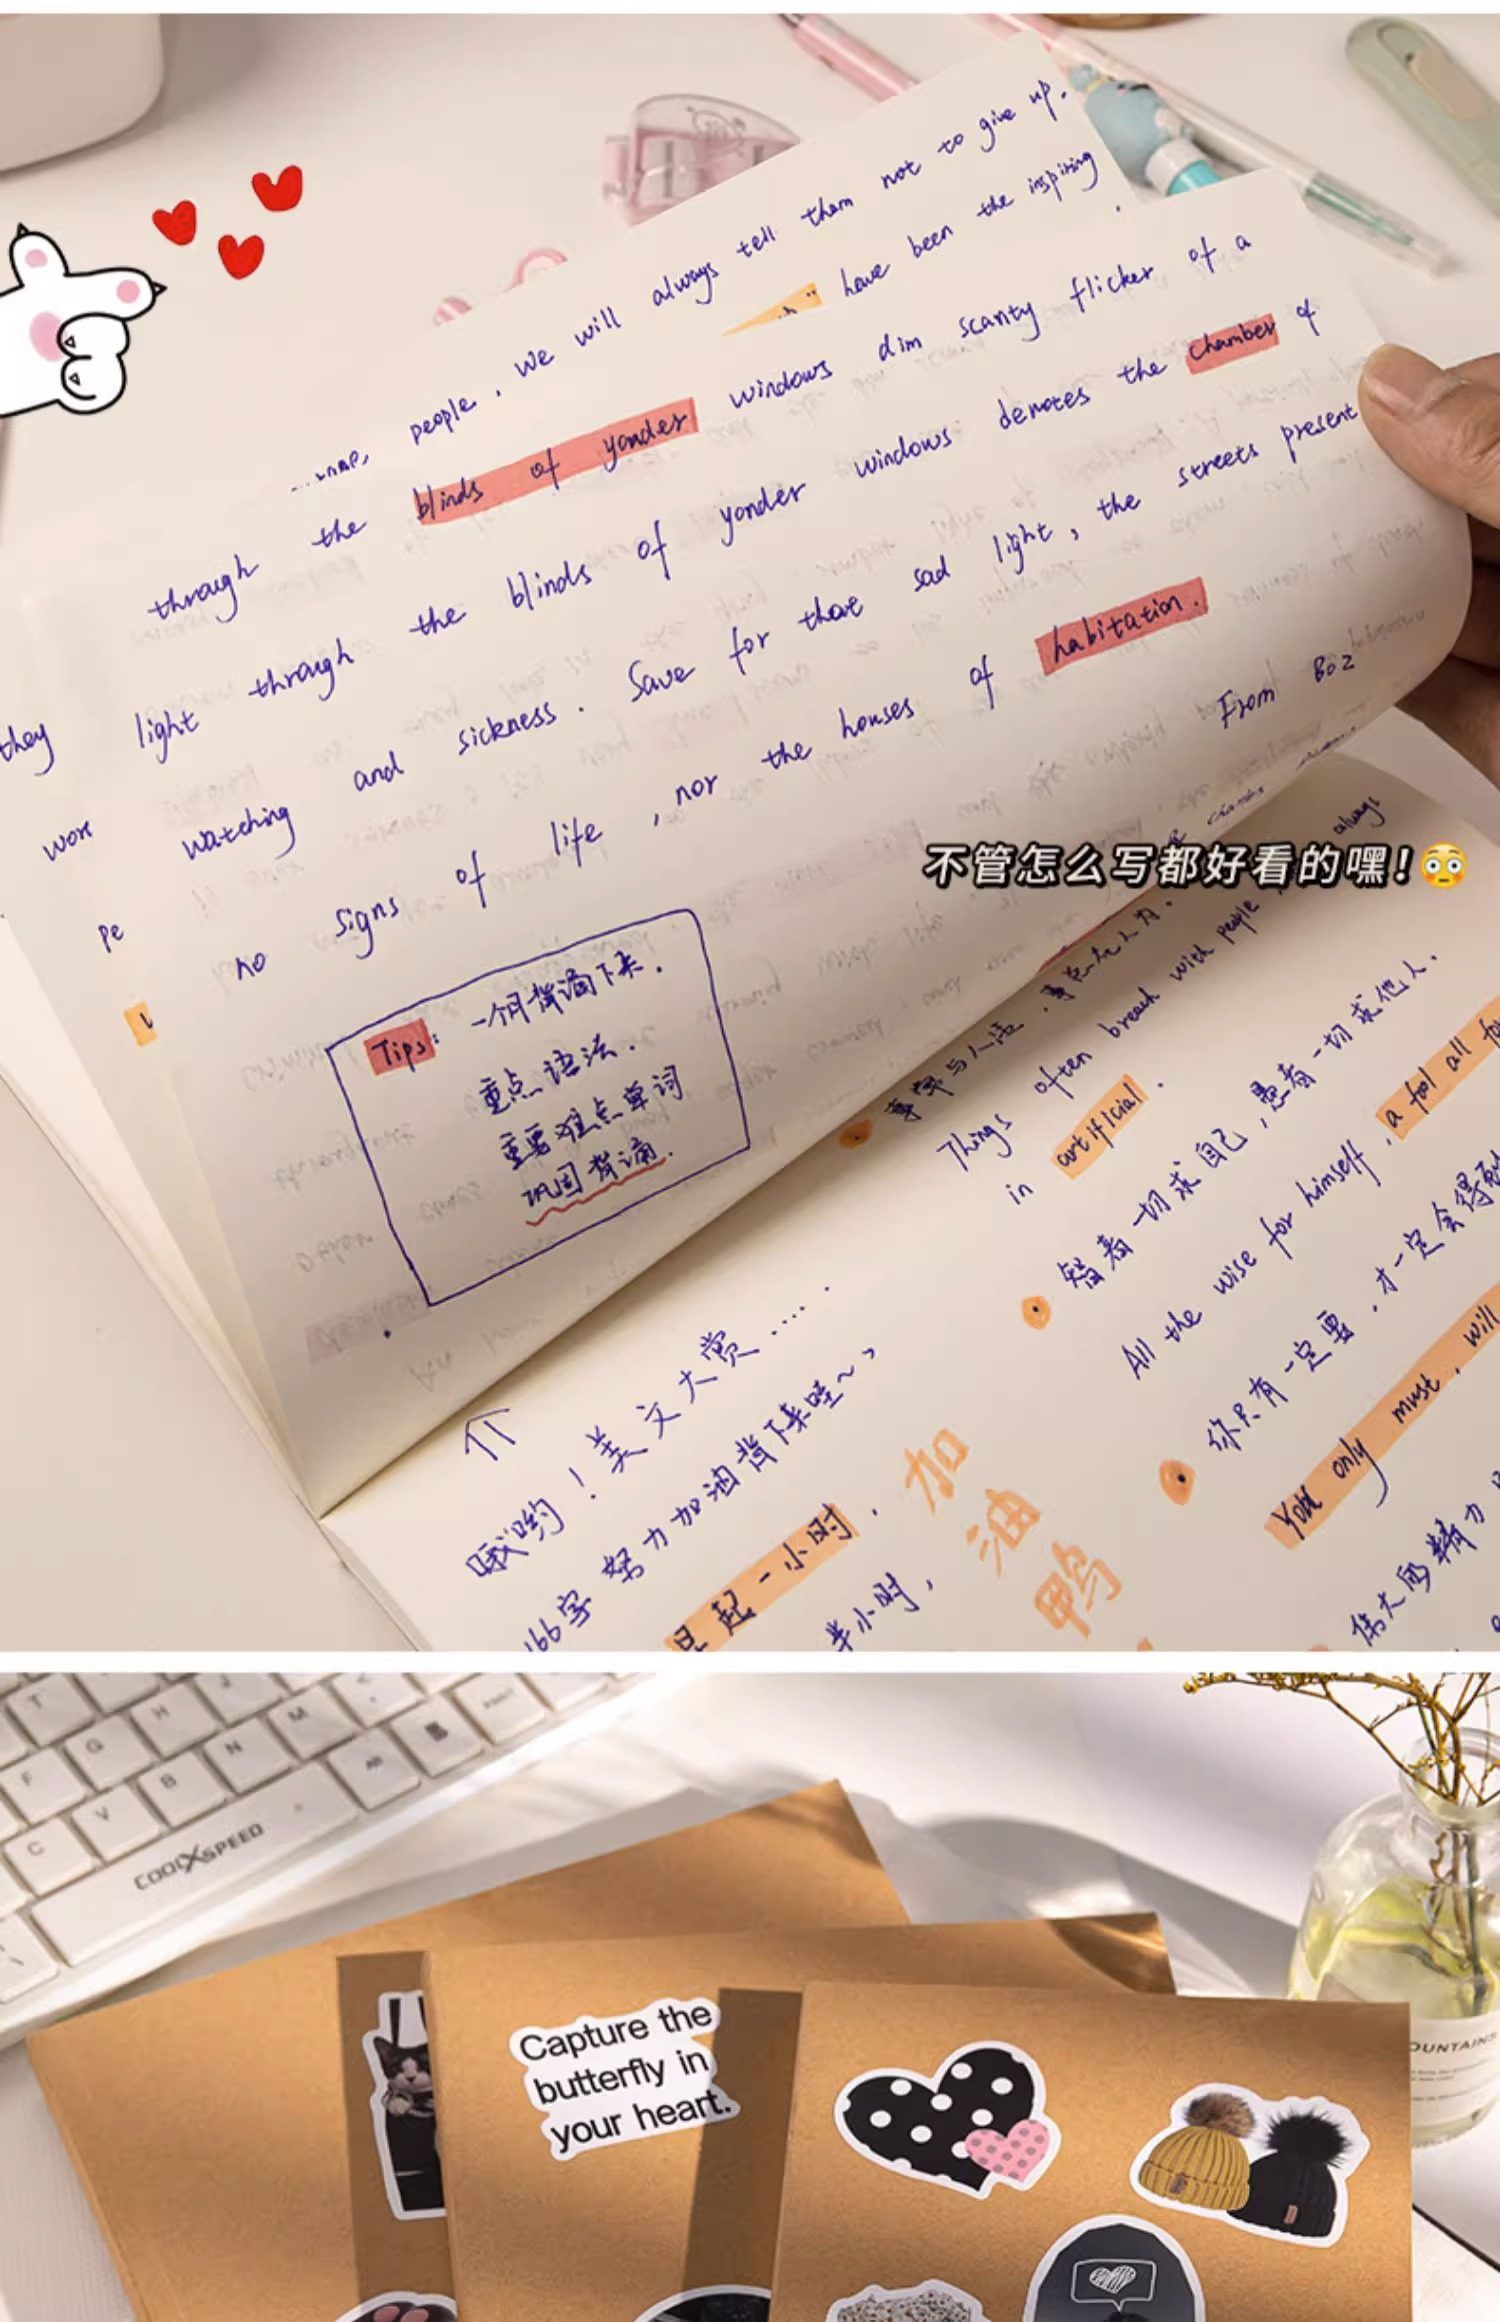 people. We will always tell them not to give up.
have been the inspiring
through the blinds of yonder windows dim scanty flicker of a
they light through the blinds of yonder windows denotes the chamber of
watching and sickness. Save for that sad light, the streets present
no signs of life, nor the houses of habitation.
From Boz
不管怎么写都好看的嘿！😳
Tips: 一个月背诵下来.
重点语法.
重要难点单词
巩固背诵.
always
事字与人违，事总在人为.
Things often breach with people
in artificial.
智者一切求自己，愚者一切求他人.
All the wise for himself, a fool all for
你只有一定要，才一定会得到
You only must, will
伟大的精力
美文大赏......
哦哟！
166字 努力加油背下来哇~，
早起一小时，
半小时，
加油鸭
T
H
J
M
F
G
N
B
V
C
COOLXSPEED
Capture the
butterfly in
your heart.
OUNTAINS